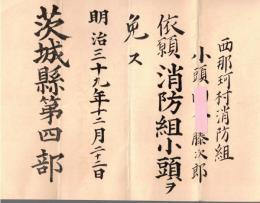 西那珂村消防組
小頭 藤次郎
依願消防組小頭ヲ
免ス
明治三十九年十二月二十二日
茨城縣第四部